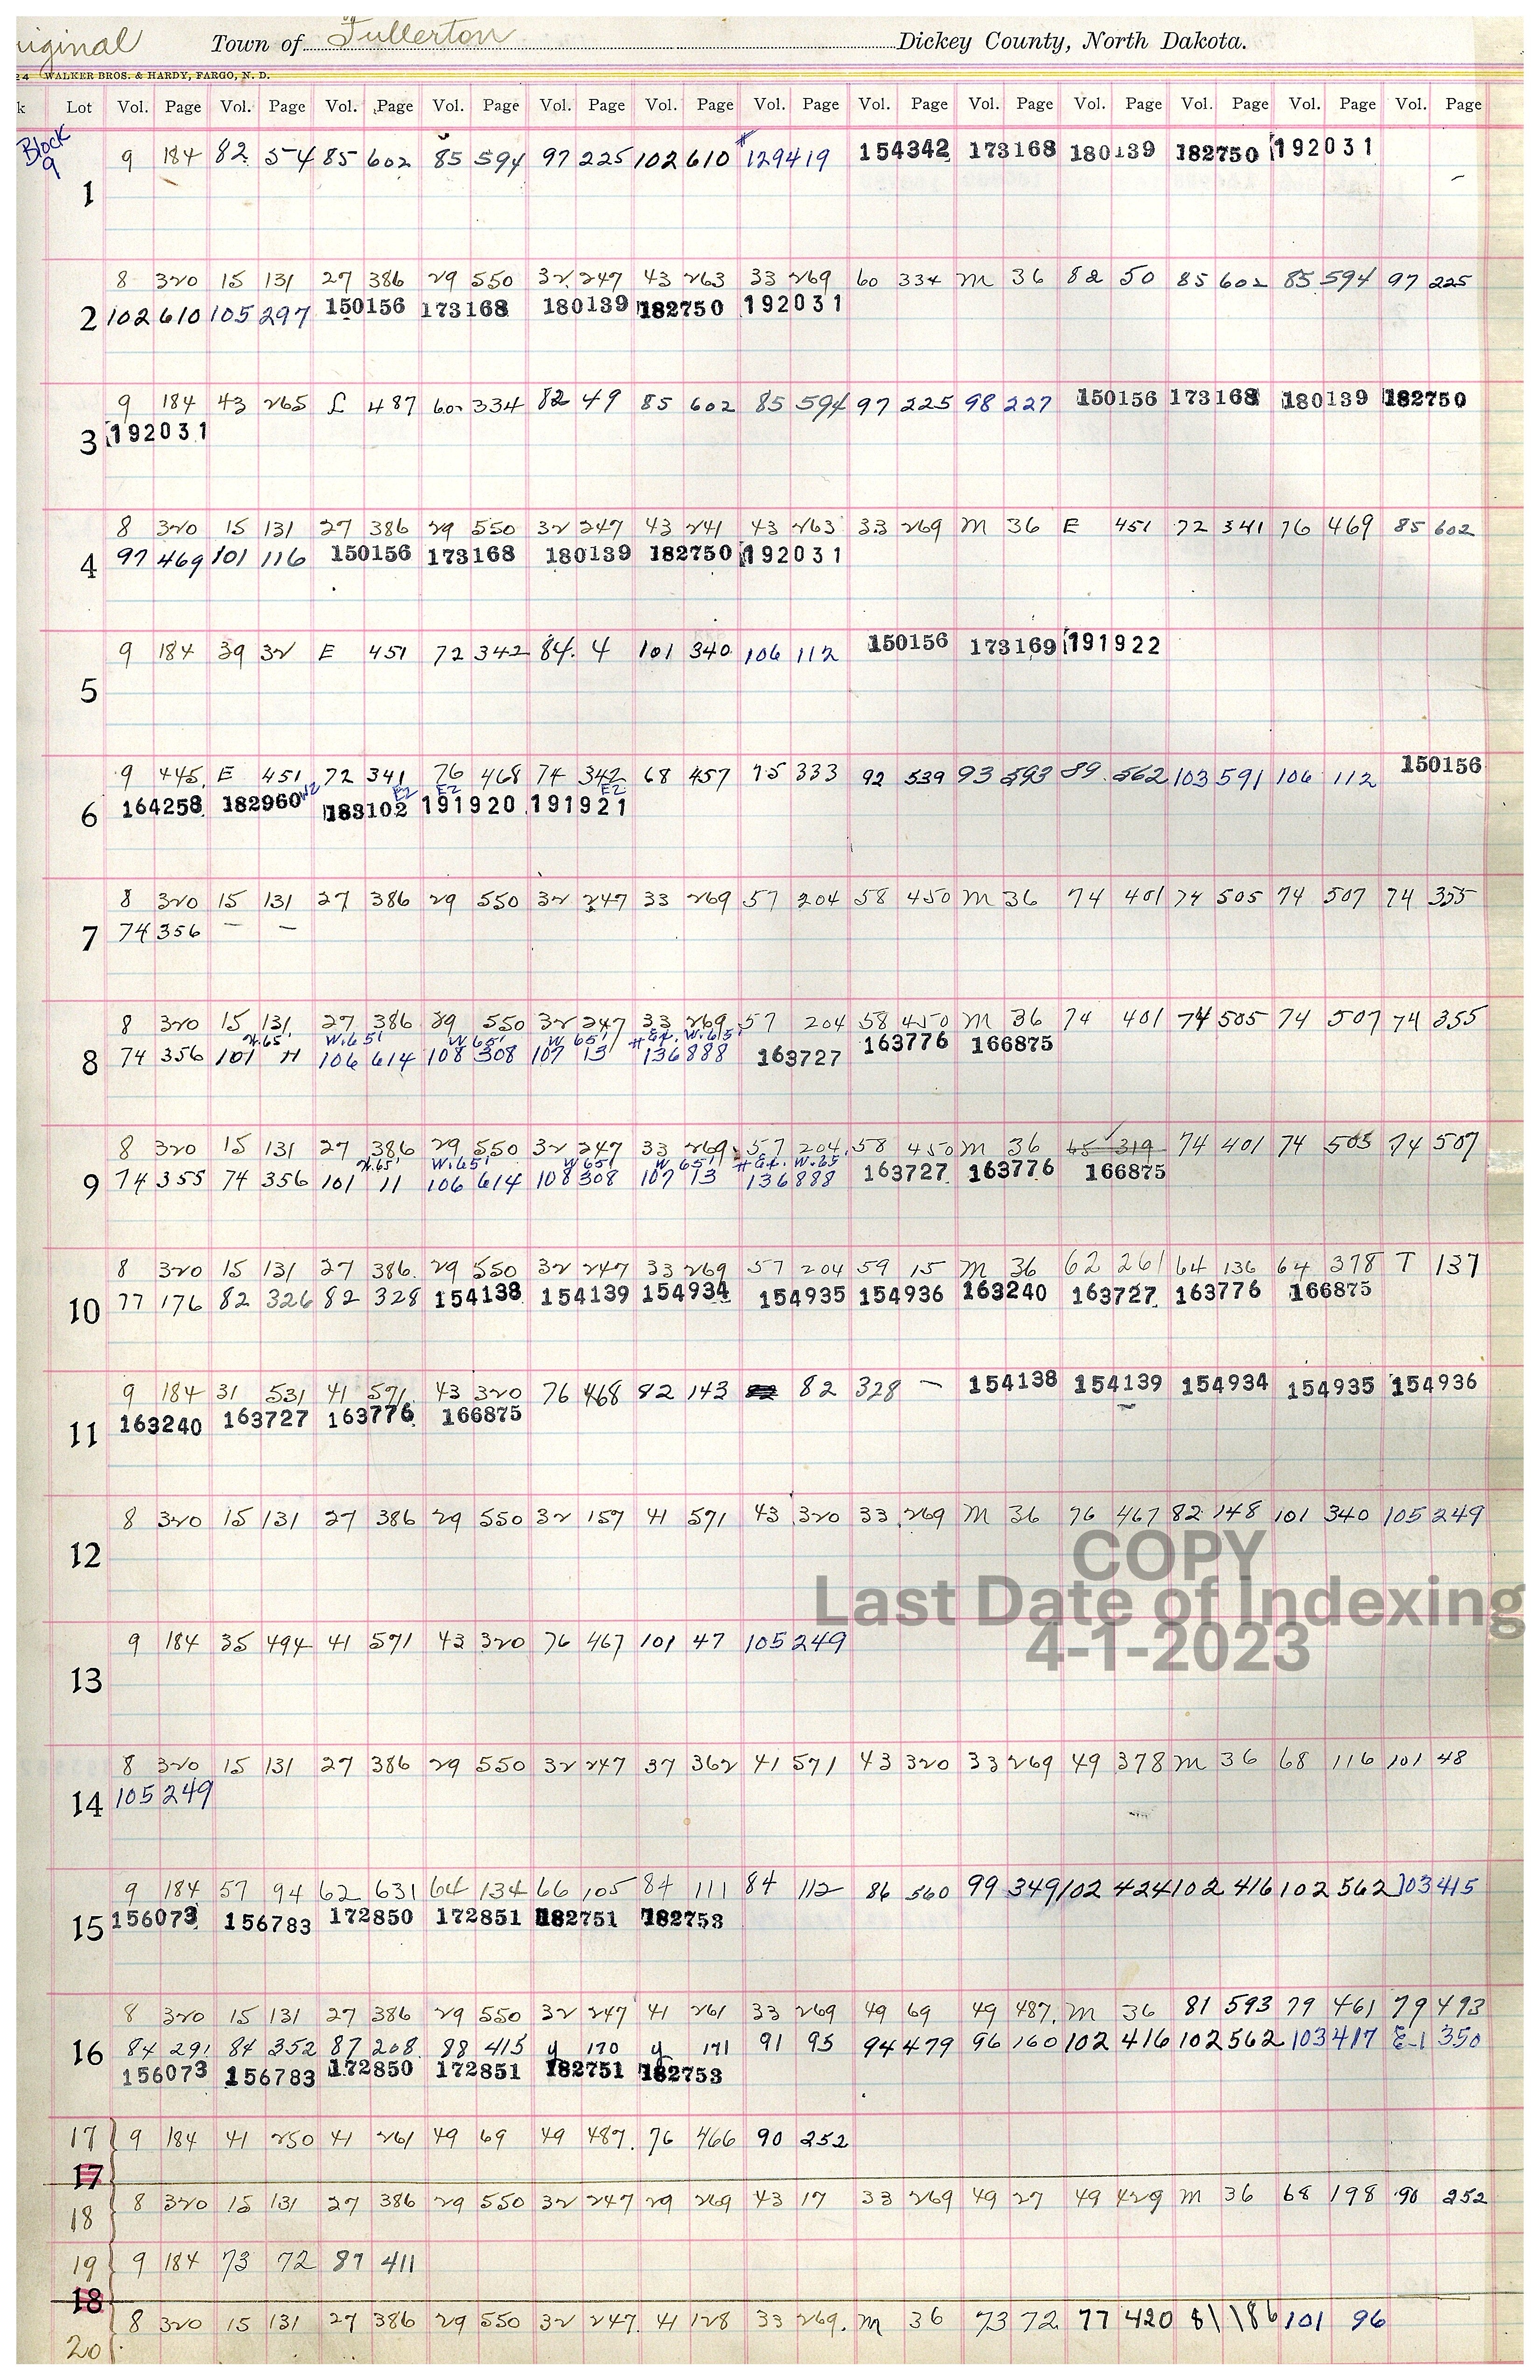 riginal Town of Fullerton Dickey County, North Dakota.
24 WALKER BROS. & HARDY, FARGO, N. D.
k Lot Vol. Page Vol. Page Vol. Page Vol. Page Vol. Page Vol. Page Vol. Page Vol. Page Vol. Page Vol. Page Vol. Page Vol. Page Vol. Page
Block 9
9 184 82 54 85 602 85 594 97 225 102 610 #129419 154342 173168 180139 182750 192031
1
8 320 15 131 27 386 29 550 32 247 43 263 33 269 60 334 M 36 82 50 85 602 85 594 97 225
2 102 610 105 297 150156 173168 180139 182750 192031
9 184 43 265 L 487 60 334 82 49 85 602 85 594 97 225 98 227 150156 173168 180139 182750
3 192031
8 320 15 131 27 386 29 550 32 247 43 241 43 263 33 269 M 36 E 451 72 341 76 469 85 602
4 97 469 101 116 150156 173168 180139 182750 192031
9 184 39 32 E 451 72 342 84 4 101 340 106 112 150156 173169 191922
5
9 445 E 451 72 341 76 468 74 342 68 457 75 333 92 539 93 593 89 562 103 591 106 112 150156
W2 E2 E2 E2
6 164258 182960 183102 191920 191921
8 320 15 131 27 386 29 550 32 247 33 269 57 204 58 450 M 36 74 401 74 505 74 507 74 355
7 74 356 — —
8 320 15 131 27 386 29 550 32 247 33 269 57 204 58 450 M 36 74 401 74 505 74 507 74 355
W.65' W.65' W 65' W 65' # Ex. W.65'
8 74 356 101 11 106 614 108 308 107 13 136888 163727 163776 166875
8 320 15 131 27 386 29 550 32 247 33 269 57 204 58 450 M 36 65 319 74 401 74 505 74 507
W.65' W.65' W 65' W 65' # Ex. W.65
9 74 355 74 356 101 11 106 614 108 308 107 13 136888 163727 163776 166875
8 320 15 131 27 386 29 550 32 247 33 269 57 204 59 15 M 36 62 261 64 136 64 378 T 137
10 77 176 82 326 82 328 154138 154139 154934 154935 154936 163240 163727 163776 166875
9 184 31 531 41 571 43 320 76 468 82 143 82 82 328 — 154138 154139 154934 154935 154936
11 163240 163727 163776 166875
8 320 15 131 27 386 29 550 32 157 41 571 43 320 33 269 M 36 76 467 82 148 101 340 105 249
12
COPY
Last Date of Indexing
4-1-2023
9 184 35 494 41 571 43 320 76 467 101 47 105 249
13
8 320 15 131 27 386 29 550 32 247 37 362 41 571 43 320 33 269 49 378 M 36 68 116 101 48
14 105 249
9 184 57 94 62 631 64 134 66 105 84 111 84 112 86 560 99 349 102 424 102 416 102 562 103 415
15 156073 156783 172850 172851 182751 182753
8 320 15 131 27 386 29 550 32 247 41 261 33 269 49 69 49 487 M 36 81 593 79 461 79 493
16 84 291 84 352 87 208 88 415 y 170 y 171 91 95 94 479 96 160 102 416 102 562 103 417 E-1 350
156073 156783 172850 172851 182751 182753
17 9 184 41 250 41 261 49 69 49 487 76 466 90 252
17
18 8 320 15 131 27 386 29 550 32 247 29 269 43 17 33 269 49 27 49 429 M 36 68 198 90 252
19 9 184 73 72 87 411
18
20 8 320 15 131 27 386 29 550 32 247 41 128 33 269 M 36 73 72 77 420 81 186 101 96